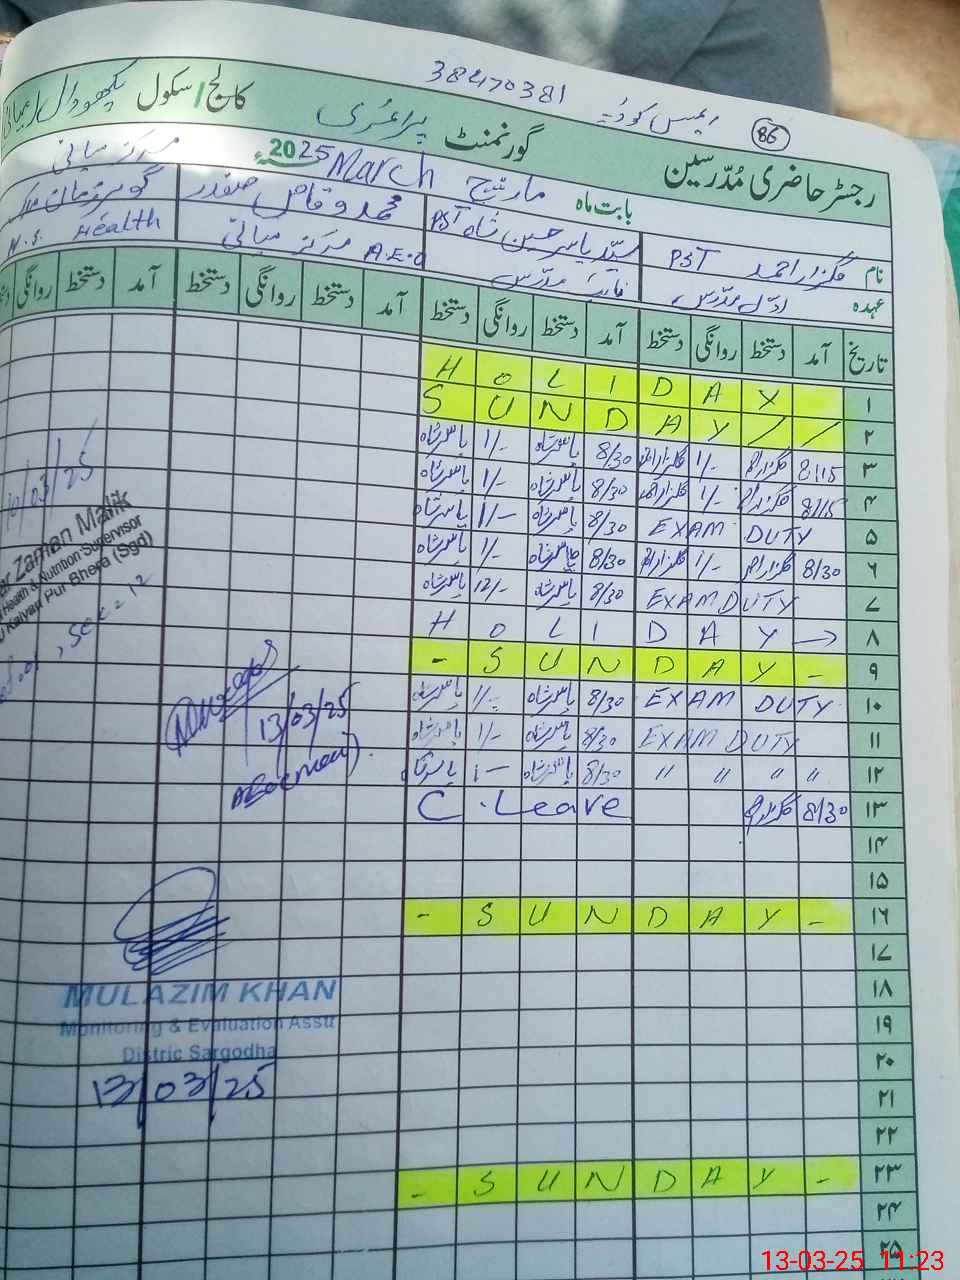 38470381 ایمس کوڈ 86
رجسٹر حاضری مُدّرسین گورنمنٹ پرائمری کالج / سکول
بابت ماہ مارچ March 2025 مرکز میانی
نام گلزار احمد PST سیّد یاسر حسین شاہ PST محمد وقاص صفدر
عہدہ اوّل مدرس نائب مدرس A.E.O مرکز میانی N.S. Health
تاریخ آمد دستخط روانگی دستخط آمد دستخط روانگی دستخط آمد دستخط روانگی دستخط آمد دستخط روانگی
۱ HOLIDAY
۲ SUNDAY //
۳ 8:15 گلزار احمد 1/- گلزار احمد 8/30 یاسر شاہ 1/- یاسر شاہ
۴ 8/15 گلزار احمد 1/- گلزار احمد 8/30 یاسر شاہ 1/- یاسر شاہ
۵ EXAM DUTY 8/30 یاسر شاہ 1/- یاسر شاہ
۶ 8/30 گلزار احمد 1/- گلزار احمد 8/30 یاسر شاہ 1/- یاسر شاہ
۷ EXAM DUTY 8/30 یاسر شاہ 12/- یاسر شاہ
۸ HOLIDAY →
۹ - SUNDAY -
۱۰ EXAM DUTY 8/30 یاسر شاہ 1/- یاسر شاہ
۱۱ EXAM DUTY 8/30 یاسر شاہ 1/- یاسر شاہ
۱۲ " " " " 8/30 یاسر شاہ 1- یاسر شاہ
۱۳ 8/30 گلزار احمد C. Leave
۱۴
۱۵
۱۶ - SUNDAY -
۱۷
۱۸
۱۹
۲۰
۲۱
۲۲
۲۳ - SUNDAY -
۲۴
۲۵
10/03/25
Zaman Malik
Health & Nutrition Supervisor
Kalyan Pur Bhera (Sgd)
13/03/25
MULAZIM KHAN
Monitoring & Evaluation Asstt
Distric Sargodha
13/03/25
13-03-25 11:23